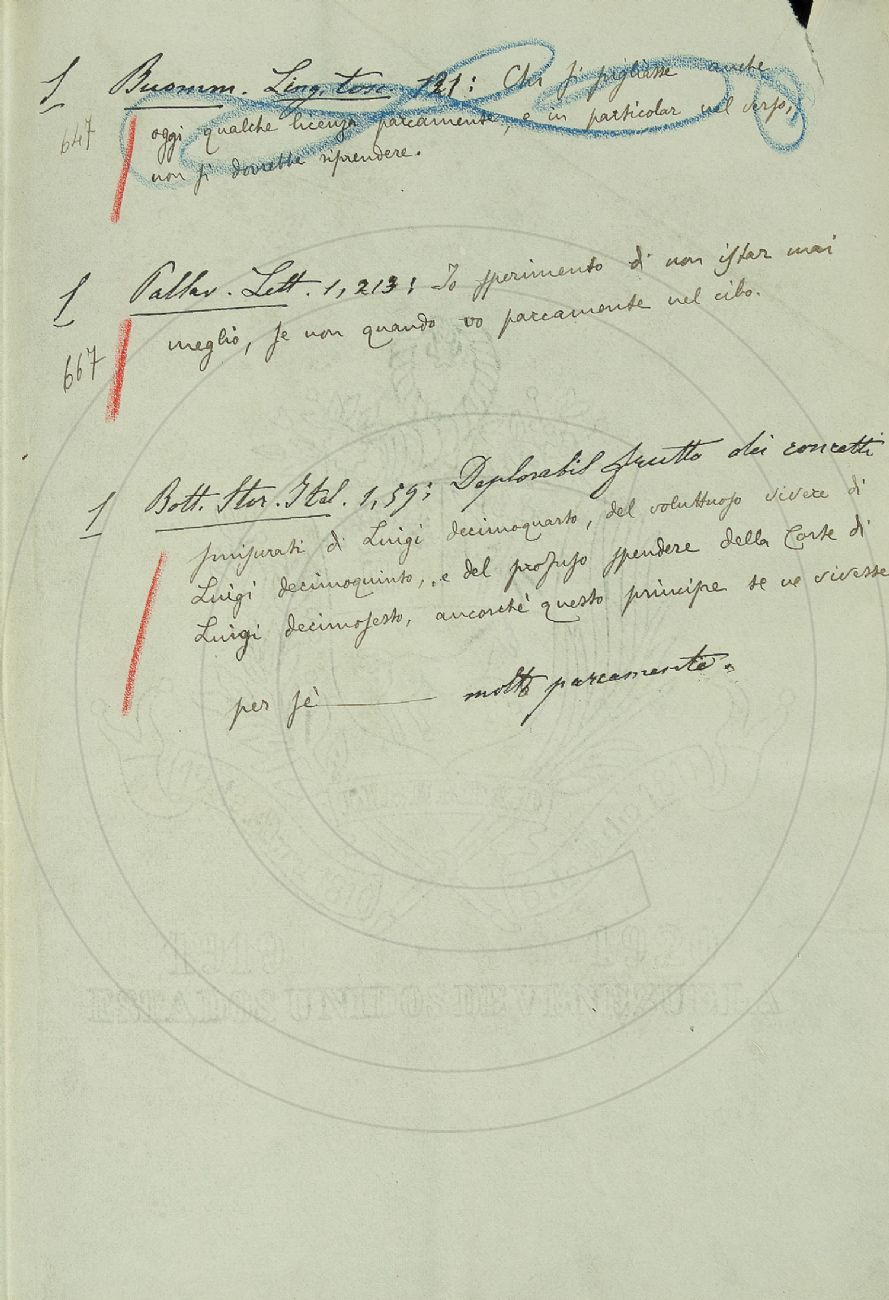 1 Buomm. Ling. tosc. 121: Chi si pigliasse anche
647 oggi qualche licenza parcamente, e in particolar nel verso,
non si dovrebbe riprendere.
1 Pallav. Lett. 1, 213: Io sperimento di non istar mai
667 meglio, se non quando vo parcamente nel cibo.
1 Bott. Stor. Ital. 1, 59: Deplorabil frutto dei concetti
smisurati di Luigi decimoquarto, del voluttuoso vivere di
Luigi decimoquinto, e del profuso spendere della Corte di
Luigi decimosesto, ancorchè questo principe se ne vivesse
per sè molto parcamente.